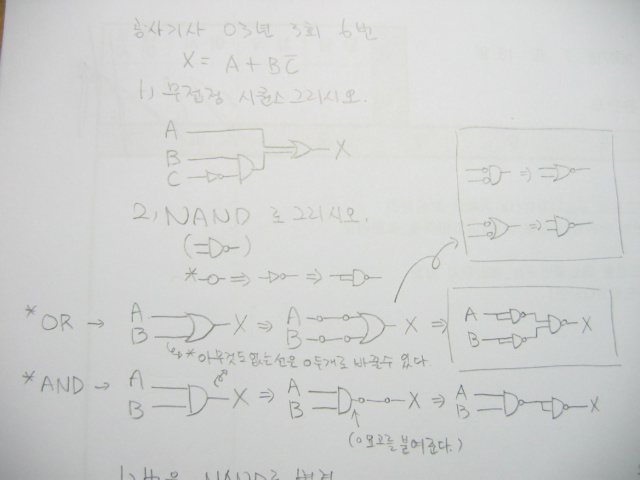 공사기사 03년 3회 6번
X = A + BC̅
1) 무접점 시퀀스 그리시오.
A
B
C
X
2) NAND 로 그리시오.
( )
* ⇒ ⇒
⇒
⇒
* OR → A B X ⇒ A B X ⇒ A B X
* 아무것도 없는 선은 0 두개로 바꿀수 있다.
* AND → A B X ⇒ A B X ⇒ A B X
(0 모고를 붙여준다.)
NAND로 변경